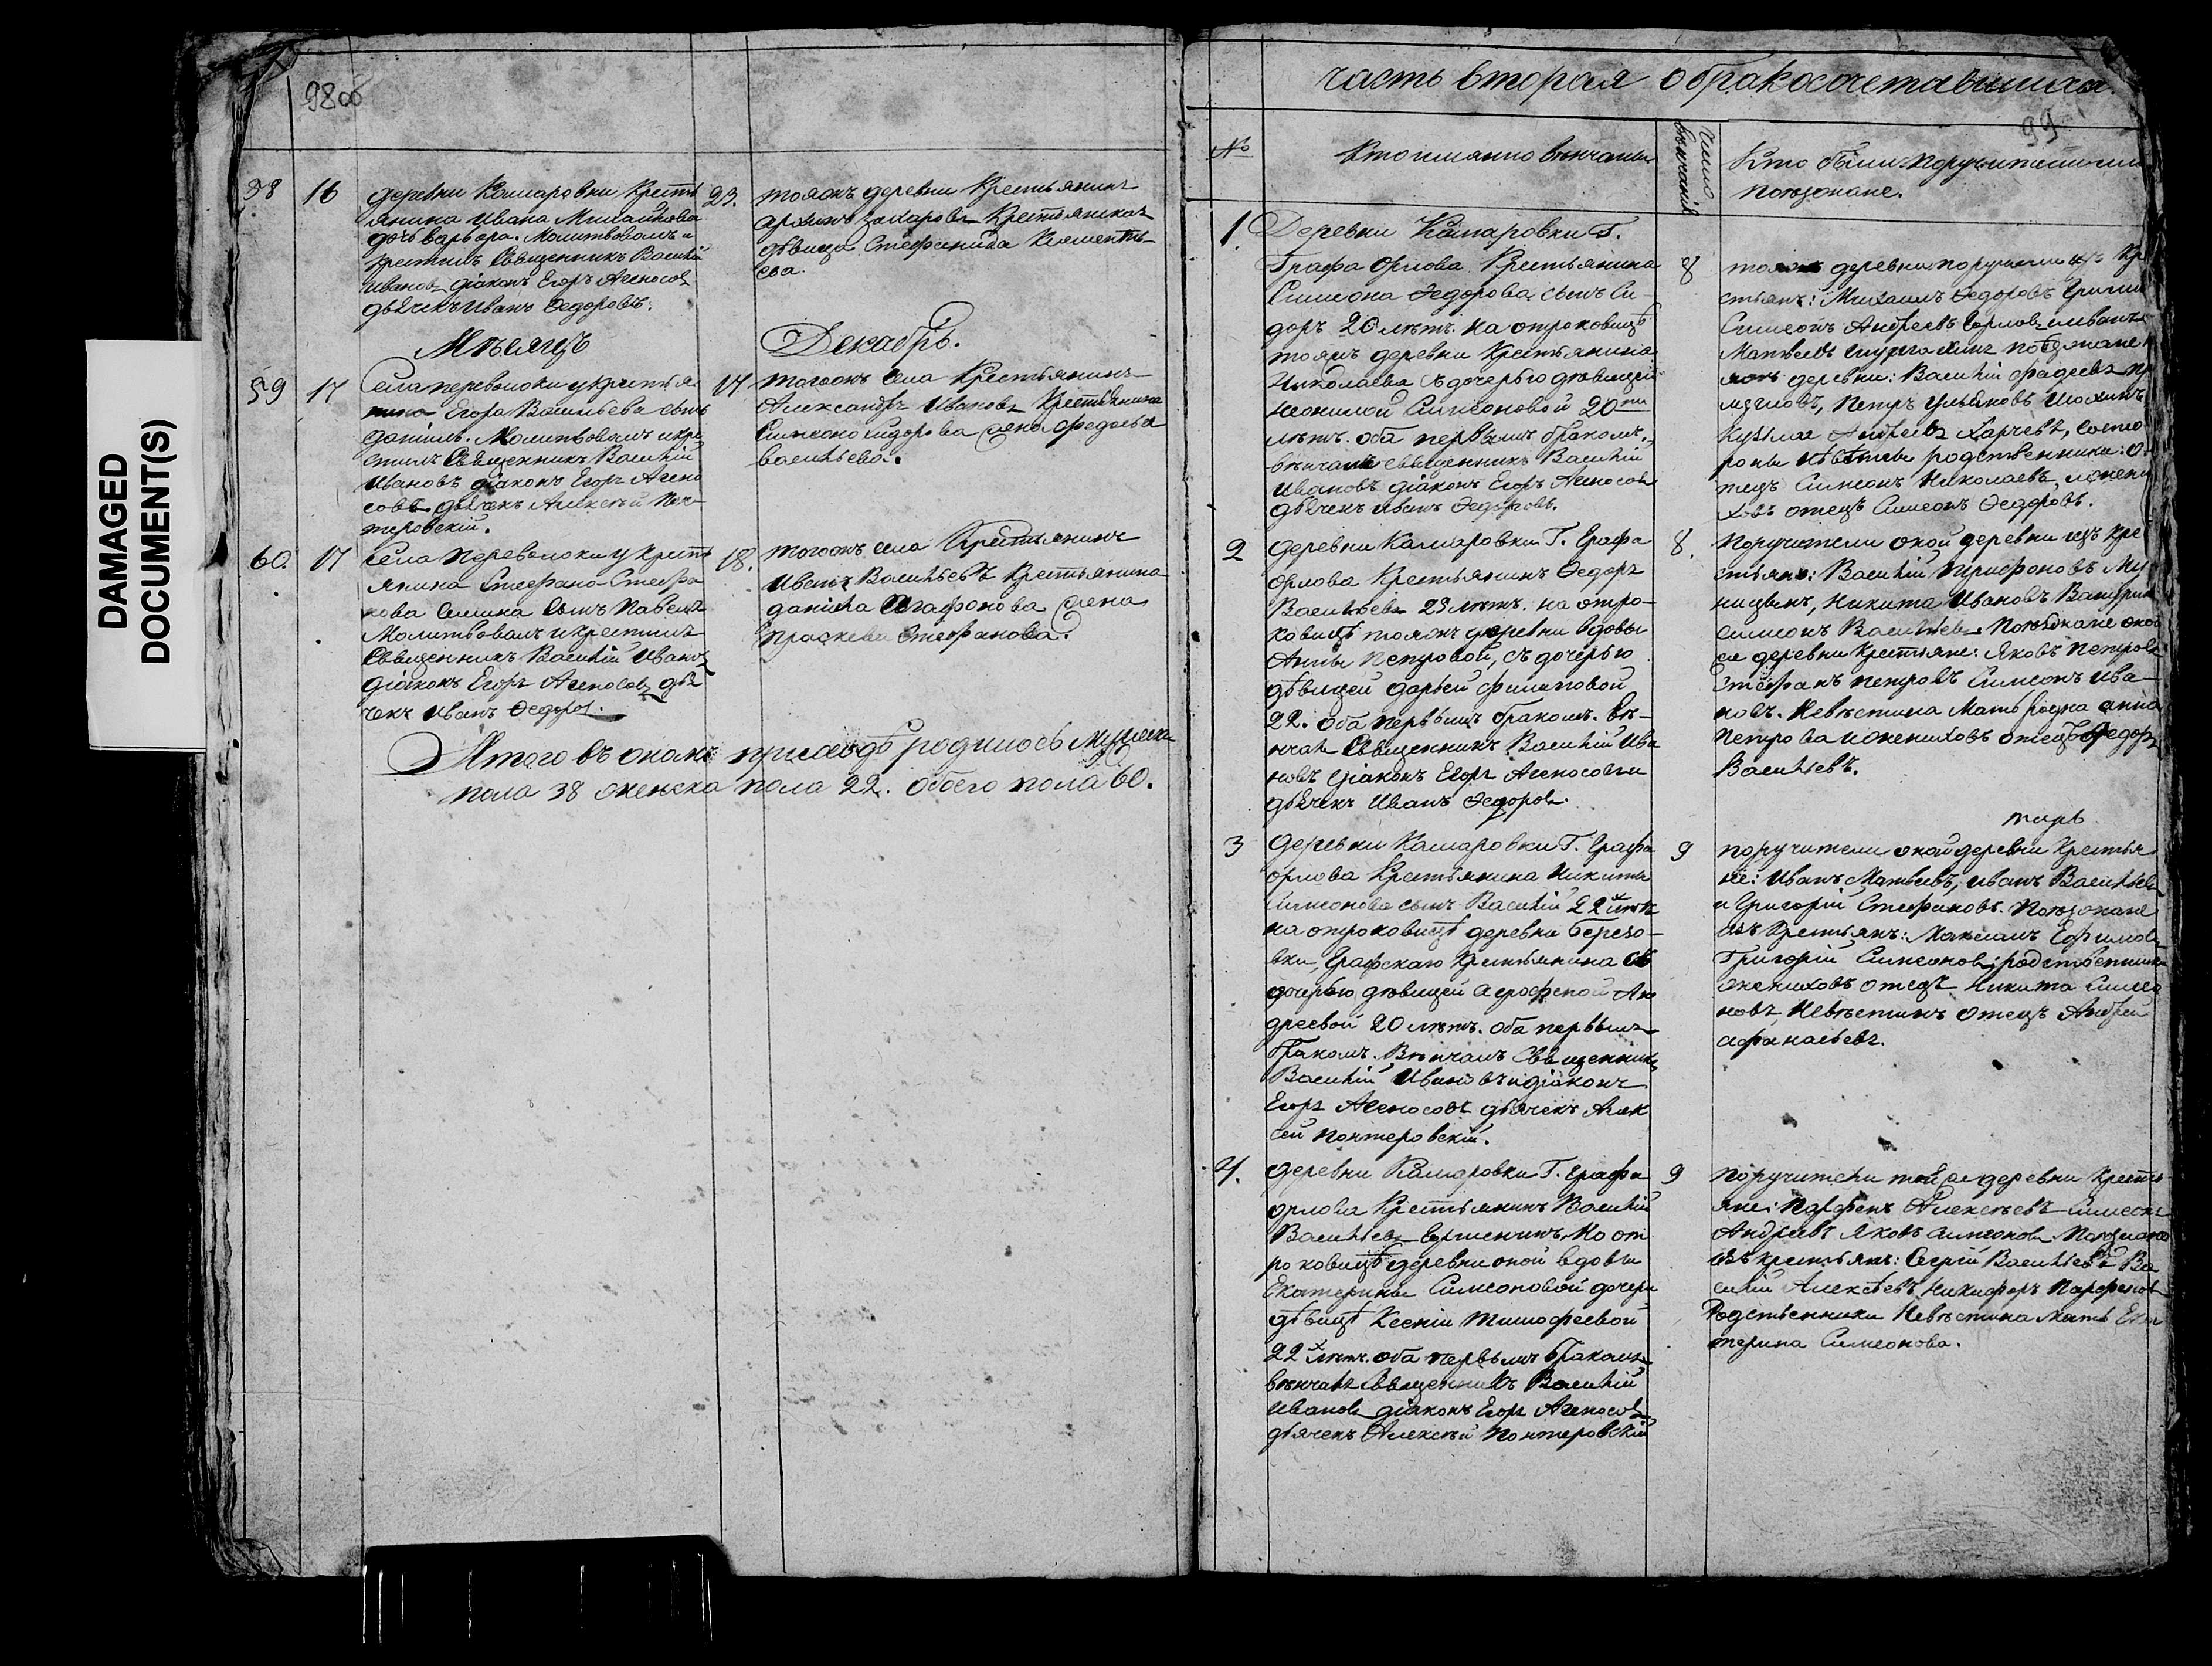 DAMAGED
DOCUMENT(S)
98 об
58
16
деревни Камаровки Кресть
янина Ивана Михайлова
дочь варвара. Молитвовалъ и
крестилъ Священникъ Василій
Ивановъ діаконъ Егоръ
дьячекъ Иванъ Ѳедоровъ.
23.
тояжъ деревни Крестьянинъ
захаровъ Крестьянская
дѣвица Стефанида Клементь-
ева.
Мѣсяцъ
Декабрь.
59
17
Села переволоки у крестья
нина Егора Васильева сынъ
даніилъ. Молитвовалъ и кре
стилъ Священникъ Василій
Ивановъ діаконъ Егоръ
дьячекъ Алексѣй
17
тогожъ села Крестьянинъ
Александръ Ивановъ Крестьянина
Симеона сидорова жена
васильева.
60.
17
Села Переволоки у кресть
янина Стефана Стефа
нова сынъ Павелъ
Молитвовалъ и крестилъ
Священникъ Василій Ивановъ
діаконъ Егоръ дья
чекъ Иванъ Ѳедоровъ.
18.
тогожъ села Крестьянинъ
Иванъ Васильевъ Крестьянина
даніила Агафонова жена
Праскева Стефанова.
Итого въ ономъ приходѣ родилось мужеска
пола 38 женска пола 22. обоего пола 60.
часть вторая о бракосочетавшихся.
99
№
Кто имянно вѣнчаны
Число вѣнчанія
Кто были поручители или
поѣзжане.
1.
Деревни Камаровки Г.
Графа Орлова Крестьянина
Симеона Ѳедорова сынъ Си-
доръ 20 лѣтъ. на отроковицѣ
тояжъ деревни Крестьянина
Николаева съ дочерью дѣвицей
Симеоновой 20ти
лѣтъ. оба первымъ бракомъ.
вѣнчалъ священникъ Василій
Ивановъ діаконъ Егоръ
дьячекъ Иванъ Ѳедоровъ.
8
тояжъ деревни поручители изъ кр
стьянъ: Михаилъ Ѳедоровъ
Симеонъ Андреевъ Иванъ
Матвеевъ поѣзжане
деревни: Василій Фадеевъ
Петръ Ульяновъ
Кузма Андреевъ Харчевъ, со сто
роны невѣсты родственники: о
тецъ Симеонъ Николаевъ, и жени
ховъ отецъ Симеонъ Ѳедоровъ.
2
деревни Камаровки Г. Графа
орлова Крестьянинъ Ѳедоръ
Васильевъ 23 лѣтъ. на отро-
ковицѣ тояжъ деревни вдовы
Анны Петровой, съ дочерью
дѣвицей дарьей филиповой
22. оба первымъ бракомъ. вѣ-
нчалъ Священникъ Василій Ива
новъ діаконъ Егоръ
дьячекъ Иванъ Ѳедоровъ.
8.
Поручители оной деревни изъ кре
стьянъ: Василій Трифоновъ
Никита Ивановъ
Симеонъ Васильевъ Поѣзжане оной
же деревни Крестьяне: Яковъ Петровъ
Стефанъ петровъ Симеонъ Ива
новъ. Невѣстина Мать родна анна
Петрова и жениховъ отецъ Ѳедоръ
Васильевъ.
3
деревни Камаровки Г. Графа
орлова Крестьянина Никиты
Симеонова сынъ Василій 22 лѣтъ
на отроковицѣ деревни Березо-
вки, Графскаго крестьянина съ
дочерью дѣвицей Ан
дреевой 20 лѣтъ. оба первымъ
бракомъ. Вѣнчалъ Священникъ
Василій Ивановъ и діаконъ
Егоръ дьячекъ Алек
сей
9
поручители оной деревни крестья
не: Иванъ Матвеевъ, Иванъ Васильевъ
и Григорій Стефановъ. Поѣзжане
изъ крестьянъ: Максимъ Ефимовъ
Григорій Симеоновъ; родственники
жениховъ отецъ Никита Симео
новъ Невѣстинъ отецъ Андрей
афанасьевъ.
4.
деревни Камаровки Г. Графа
орлова Крестьянинъ Василій
Васильевъ На от
роковицѣ деревни оной вдовы
Екатерины Симеоновой дочери
дѣвицѣ Ксеніи Тимофеевой
22 лѣтъ. оба первымъ бракомъ
вѣнчалъ Священникъ Василій
Ивановъ діаконъ Егоръ
дьячекъ Алексѣй
9
поручители той же деревни кресть
яне: Парфенъ Алексѣевъ Симеонъ
Андреевъ Яковъ Симеоновъ Поѣзжане
изъ крестьянъ: Сергій Васильевъ Ва
силій Алексѣевъ Никифоръ Парфеновъ
Родственники Невѣстина мать Ека
терина Симеонова.